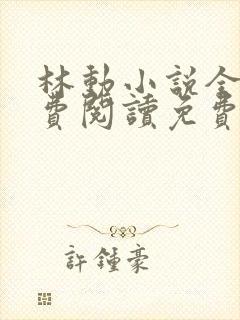 林動小說全
費閱讀免費
許鍾豪